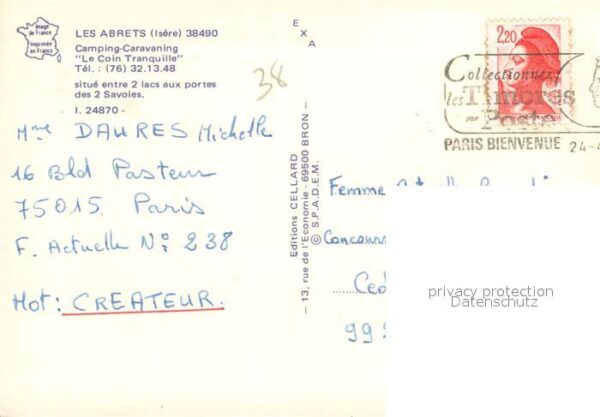 Image
de France
Imprimée
en France
LES ABRETS (Isère) 38490
Camping-Caravaning
"Le Coin Tranquille"
Tél. : (76) 32.13.48
situé entre 2 lacs aux portes
des 2 Savoies.
I. 24870 -
38
Mme DAURES Michelle
16 Bld Pasteur
75015 Paris
F. Actuelle No: 238
Mot: CREATEUR.
EXA
Editions CELLARD
- 13, rue de l'Economie - 69500 BRON -
© S.P.A.D.E.M.
2,20
Collectionnez
les Timbres
~ Poste
PARIS BIENVENUE 24-
Femme
Concours
Ced
99
privacy protection
Datenschutz